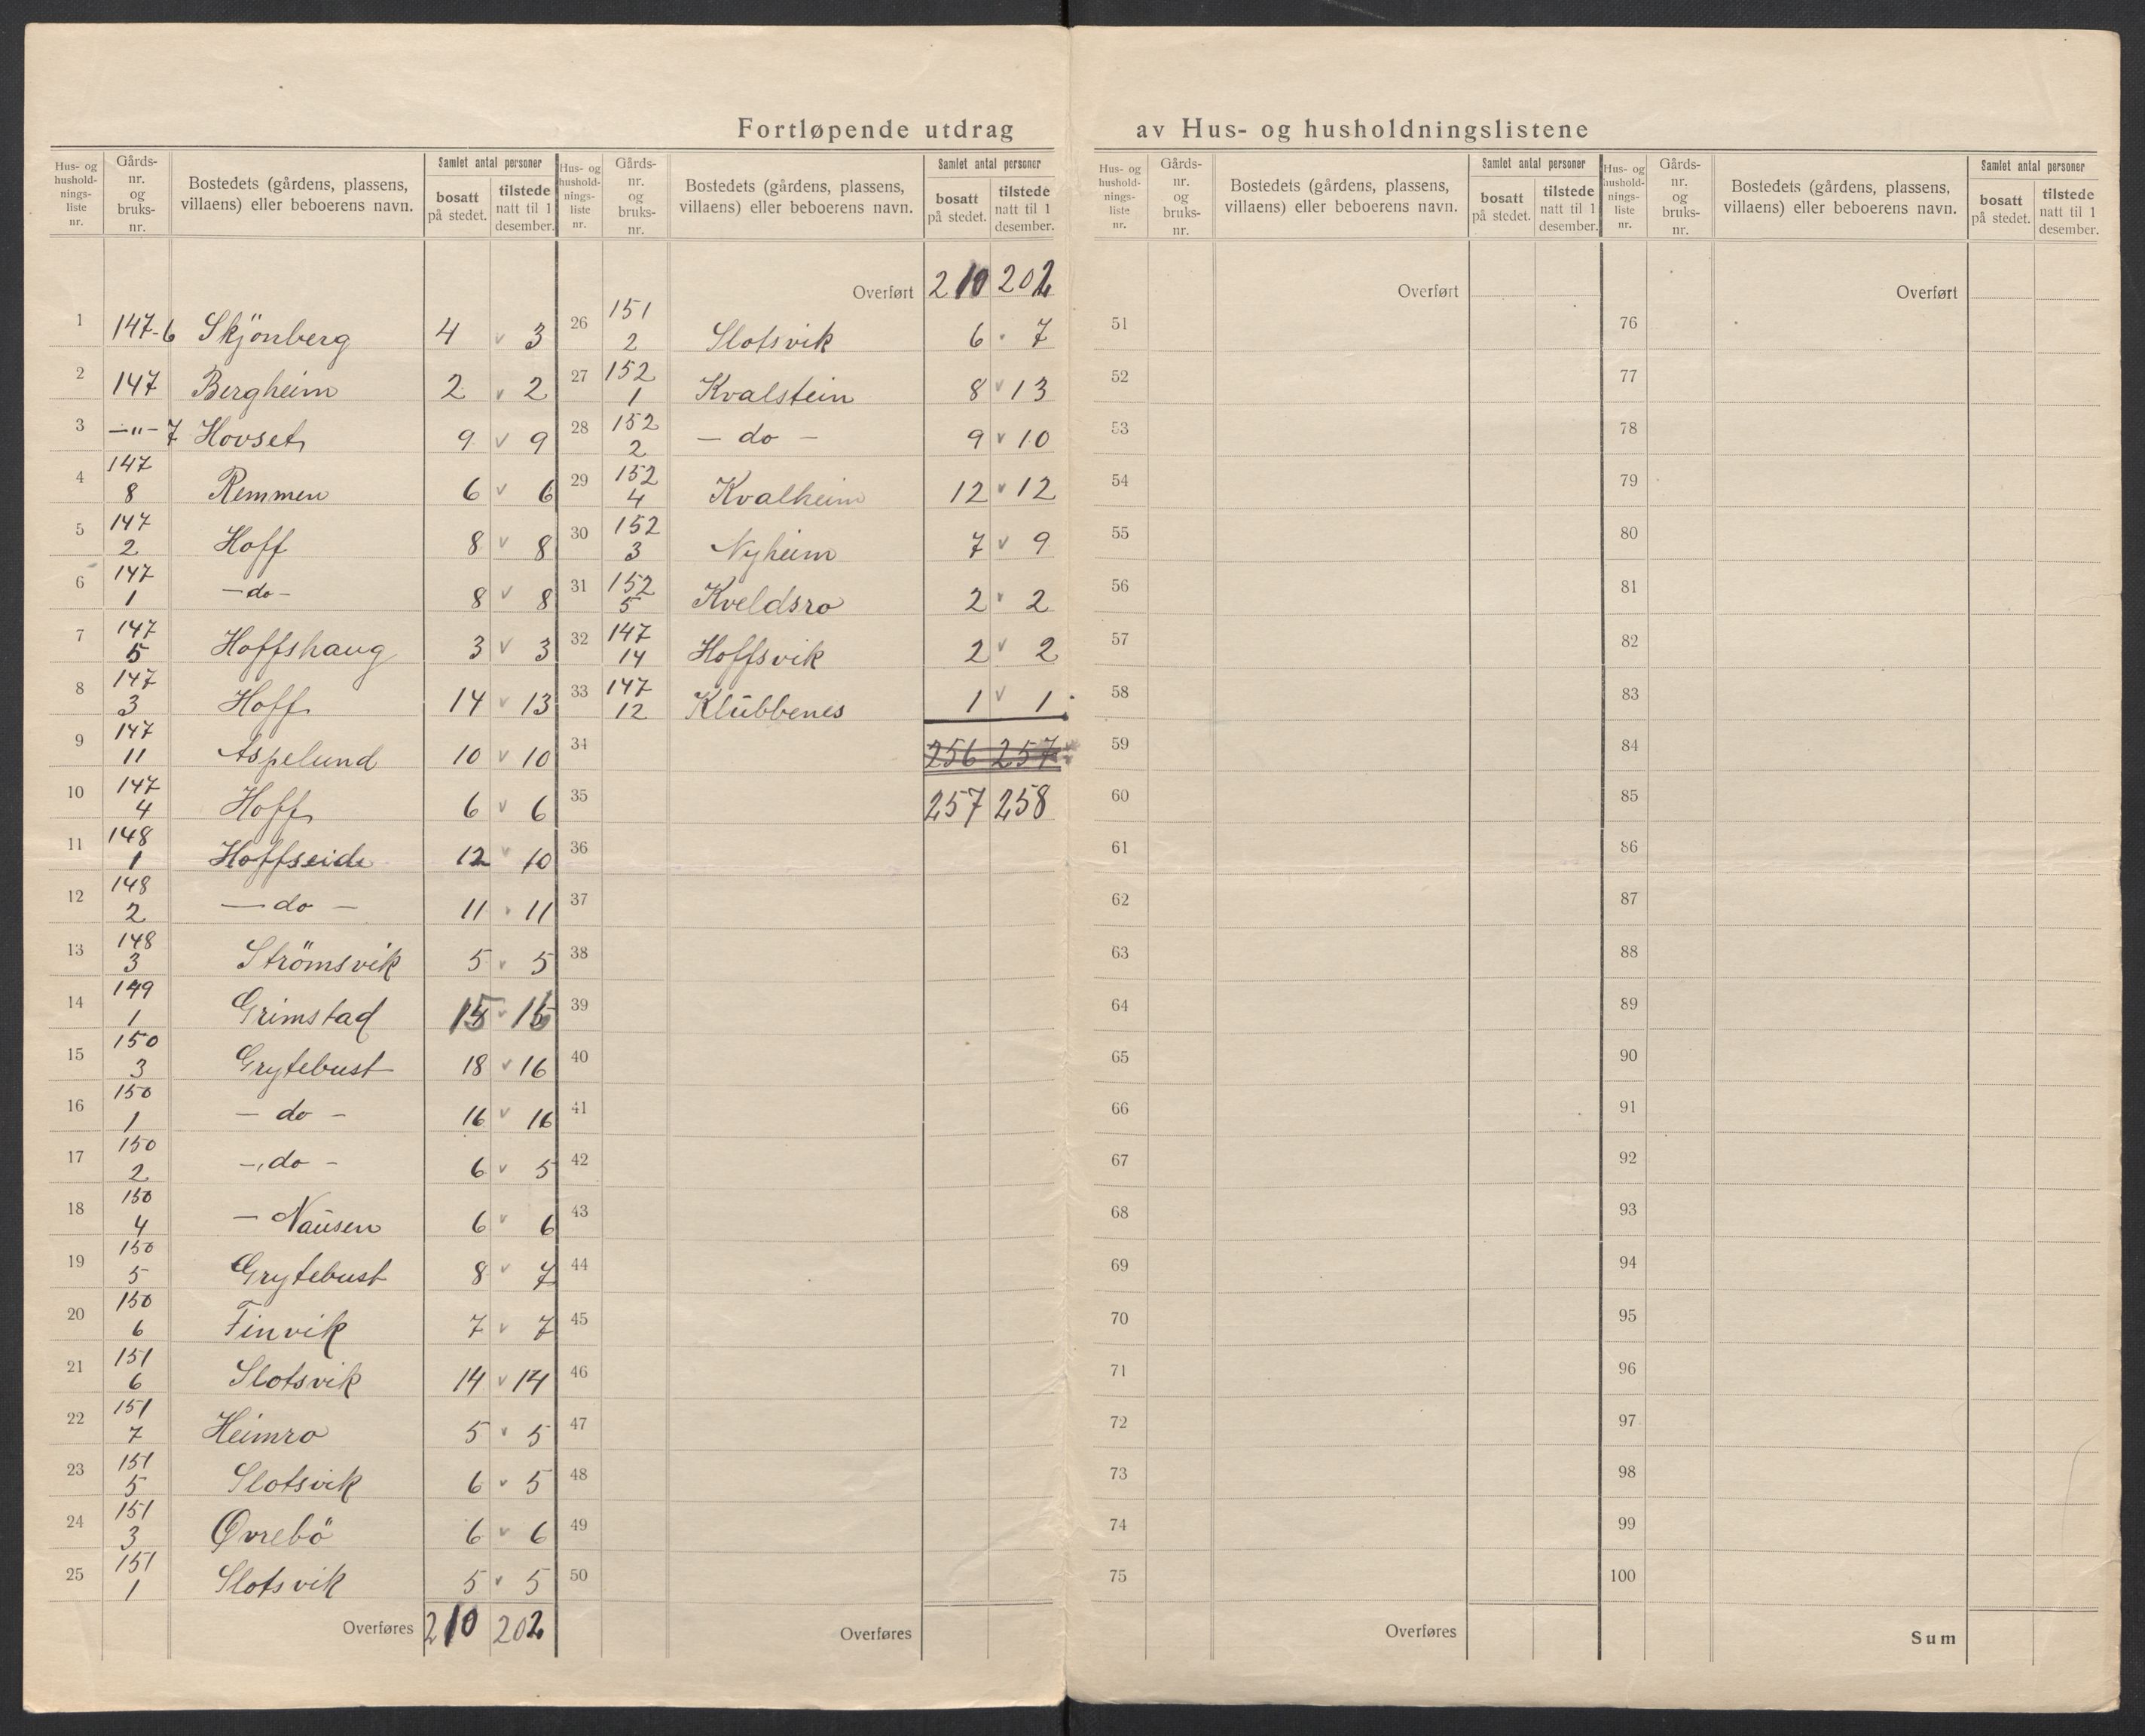 Fortløpende utdrag av Hus- og husholdningslistene
Hus- og hushold-nings-liste nr. Gårds-nr. og bruks-nr. Bostedets (gårdens, plassens, villaens) eller beboerens navn. Samlet antal personer bosatt på stedet. tilstede natt til 1 desember.
1 147-6 Skjönberg 4 v 3
2 147 Bergheim 2 v 2
3 —"— 7 Hovset 9 v 9
4 147 8 Remmen 6 v 6
5 147 2 Hoff 8 v 8
6 147 1 — do — 8 v 8
7 147 5 Hoffshaug 3 v 3
8 147 3 Hoff 14 v 13
9 147 11 Aspelund 10 v 10
10 147 4 Hoff 6 v 6
11 148 1 Hoffseide 12 v 10
12 148 2 — do — 11 v 11
13 148 3 Strömsvik 5 v 5
14 149 1 Grimstad 15 v 15
15 150 3 Grytebust 18 v 16
16 150 1 — do — 16 v 16
17 150 2 — do — 6 v 5
18 150 4 — Naüsen 6 v 6
19 150 5 Grytebust 8 v 7
20 150 6 Finvik 7 v 7
21 151 6 Slotsvik 14 v 14
22 151 7 Heimro 5 v 5
23 151 5 Slotsvik 6 v 5
24 151 3 Øvrebö 6 v 6
25 151 1 Slotsvik 5 v 5
Overføres 210 202
Hus- og hushold-nings-liste nr. Gårds-nr. og bruks-nr. Bostedets (gårdens, plassens, villaens) eller beboerens navn. Samlet antal personer bosatt på stedet. tilstede natt til 1 desember.
Overført 210 202
26 151 2 Slotsvik 6 v 7
27 152 1 Kvalstein 8 v 13
28 152 2 — do — 9 v 10
29 152 4 Kvalheim 12 v 12
30 152 3 Nyheim 7 v 9
31 152 5 Kveldsro 2 v 2
32 147 14 Hoffsvik 2 v 2
33 147 12 Klübbenes 1 v 1
34 256 257
35 257 258
36
37
38
39
40
41
42
43
44
45
46
47
48
49
50
Overføres
Hus- og hushold-nings-liste nr. Gårds-nr. og bruks-nr. Bostedets (gårdens, plassens, villaens) eller beboerens navn. Samlet antal personer bosatt på stedet. tilstede natt til 1 desember.
Overført
51
52
53
54
55
56
57
58
59
60
61
62
63
64
65
66
67
68
69
70
71
72
73
74
75
Overføres
Hus- og hushold-nings-liste nr. Gårds-nr. og bruks-nr. Bostedets (gårdens, plassens, villaens) eller beboerens navn. Samlet antal personer bosatt på stedet. tilstede natt til 1 desember.
Overført
76
77
78
79
80
81
82
83
84
85
86
87
88
89
90
91
92
93
94
95
96
97
98
99
100
Sum